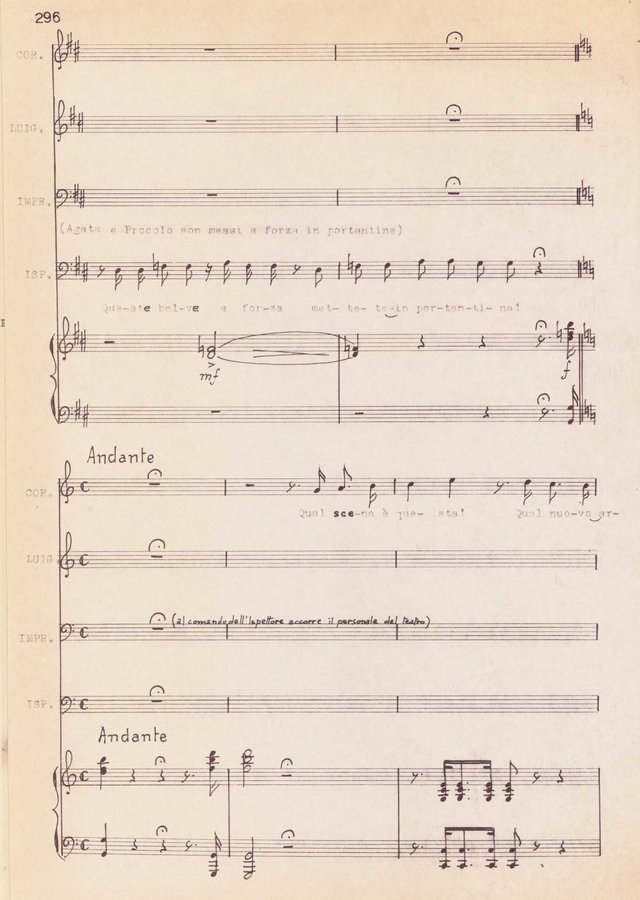 296
COR.
LUIG.
IMPR.
(Agata e Proccolo son messi a forza in portantina)
ISP.
Que-ste bel-ve a for-za met-te-te-in por-tan-ti-na!
mf
f
Andante
COR.
Qual sce-na è que-sta! Qual nuo-vo ar-
LUIG
(al comando dell'Ispettore accorre il personale del teatro)
IMPR.
ISP.
Andante